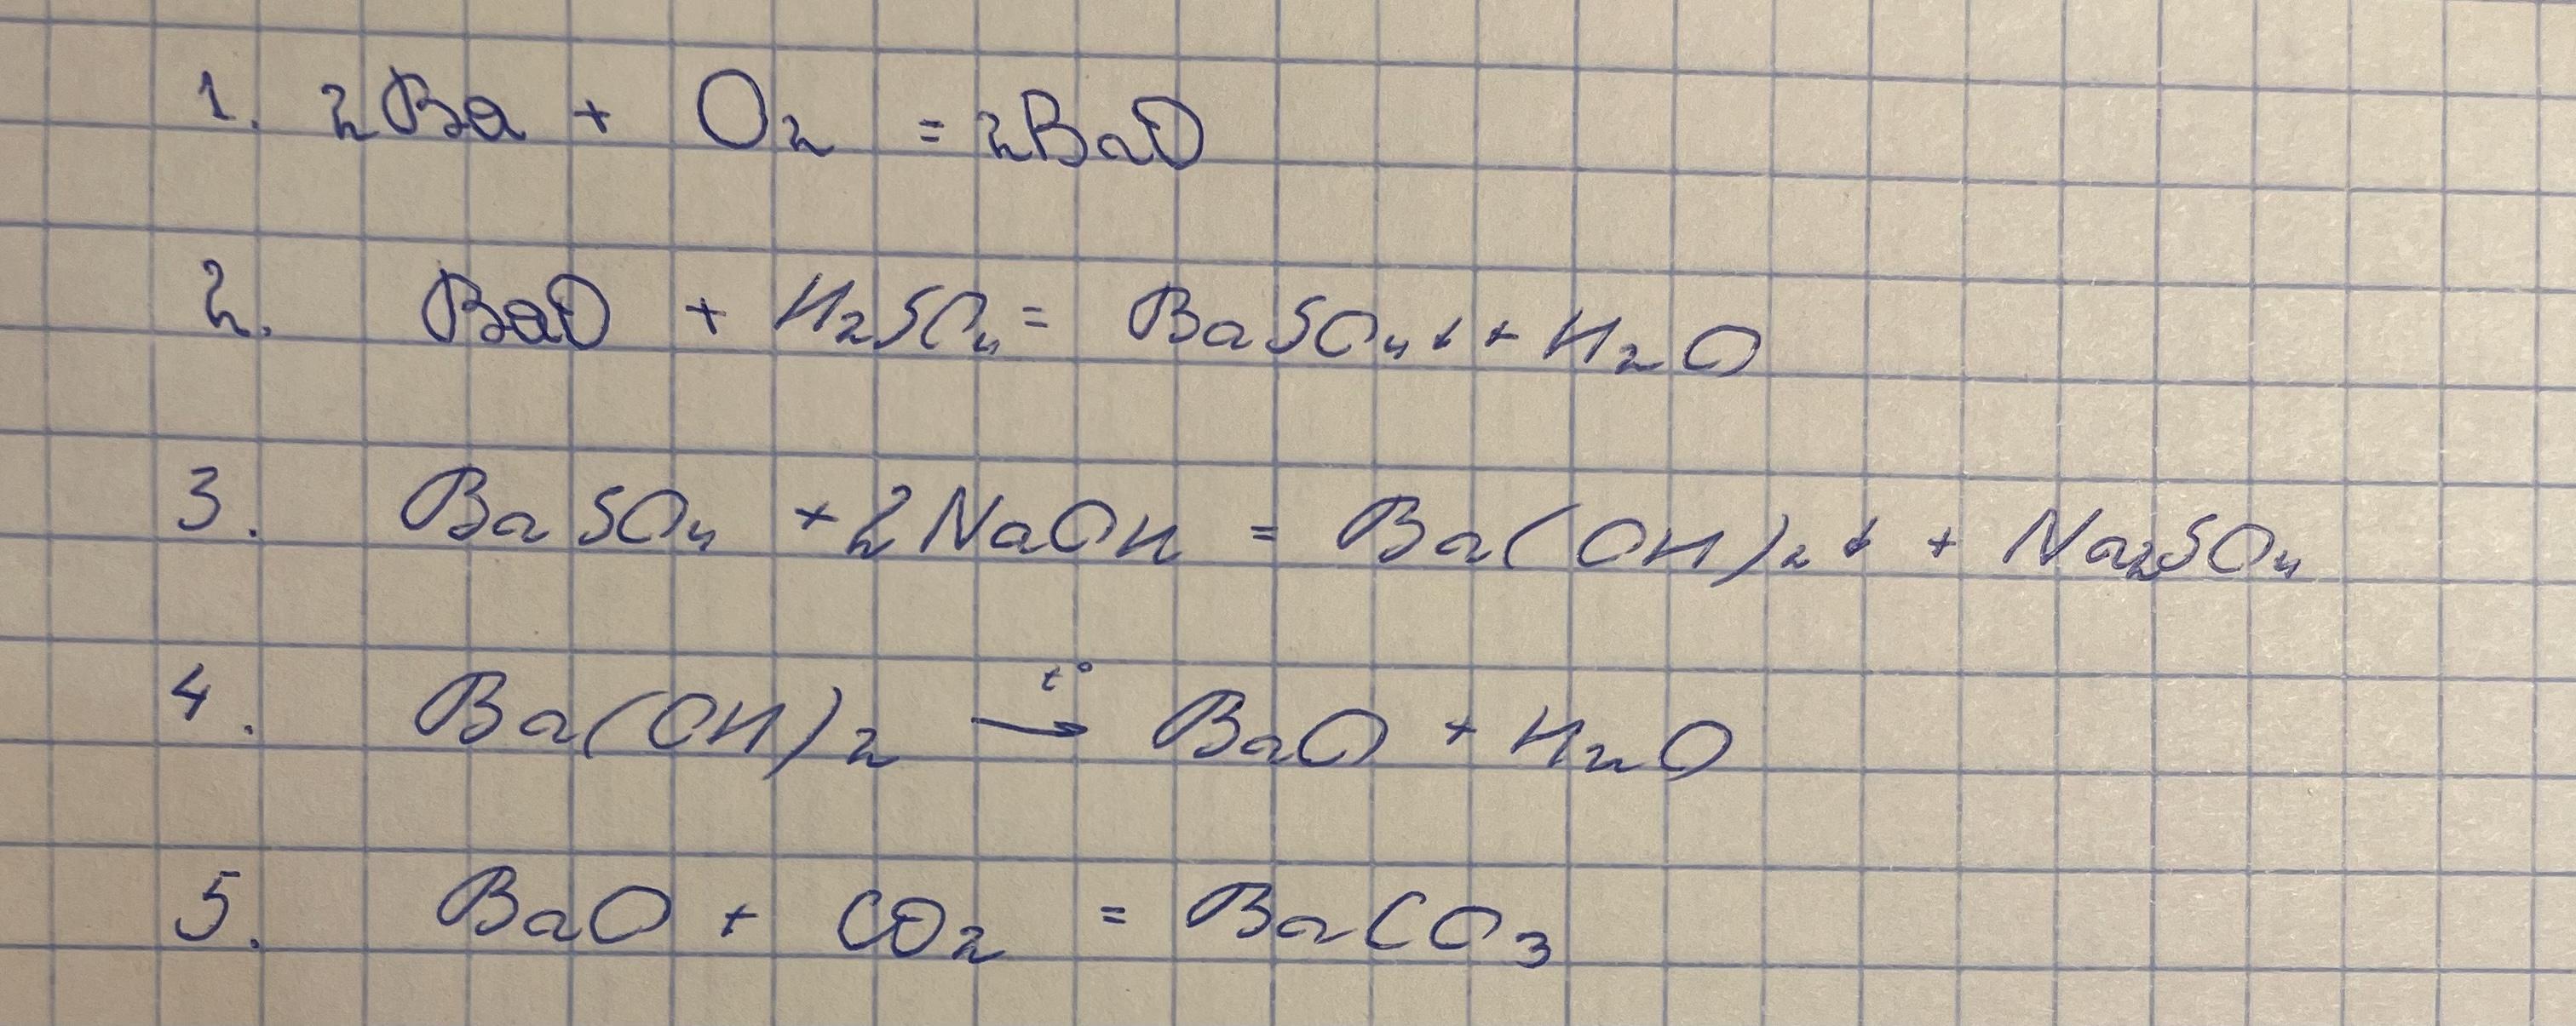 1. 2Ba + O₂ = 2BaO
2. BaO + H₂SO₄ = BaSO₄↓ + H₂O
3. BaSO₄ + 2NaOH = Ba(OH)₂↓ + Na₂SO₄
4. Ba(OH)₂ →t° BaO + H₂O
5. BaO + CO₂ = BaCO₃